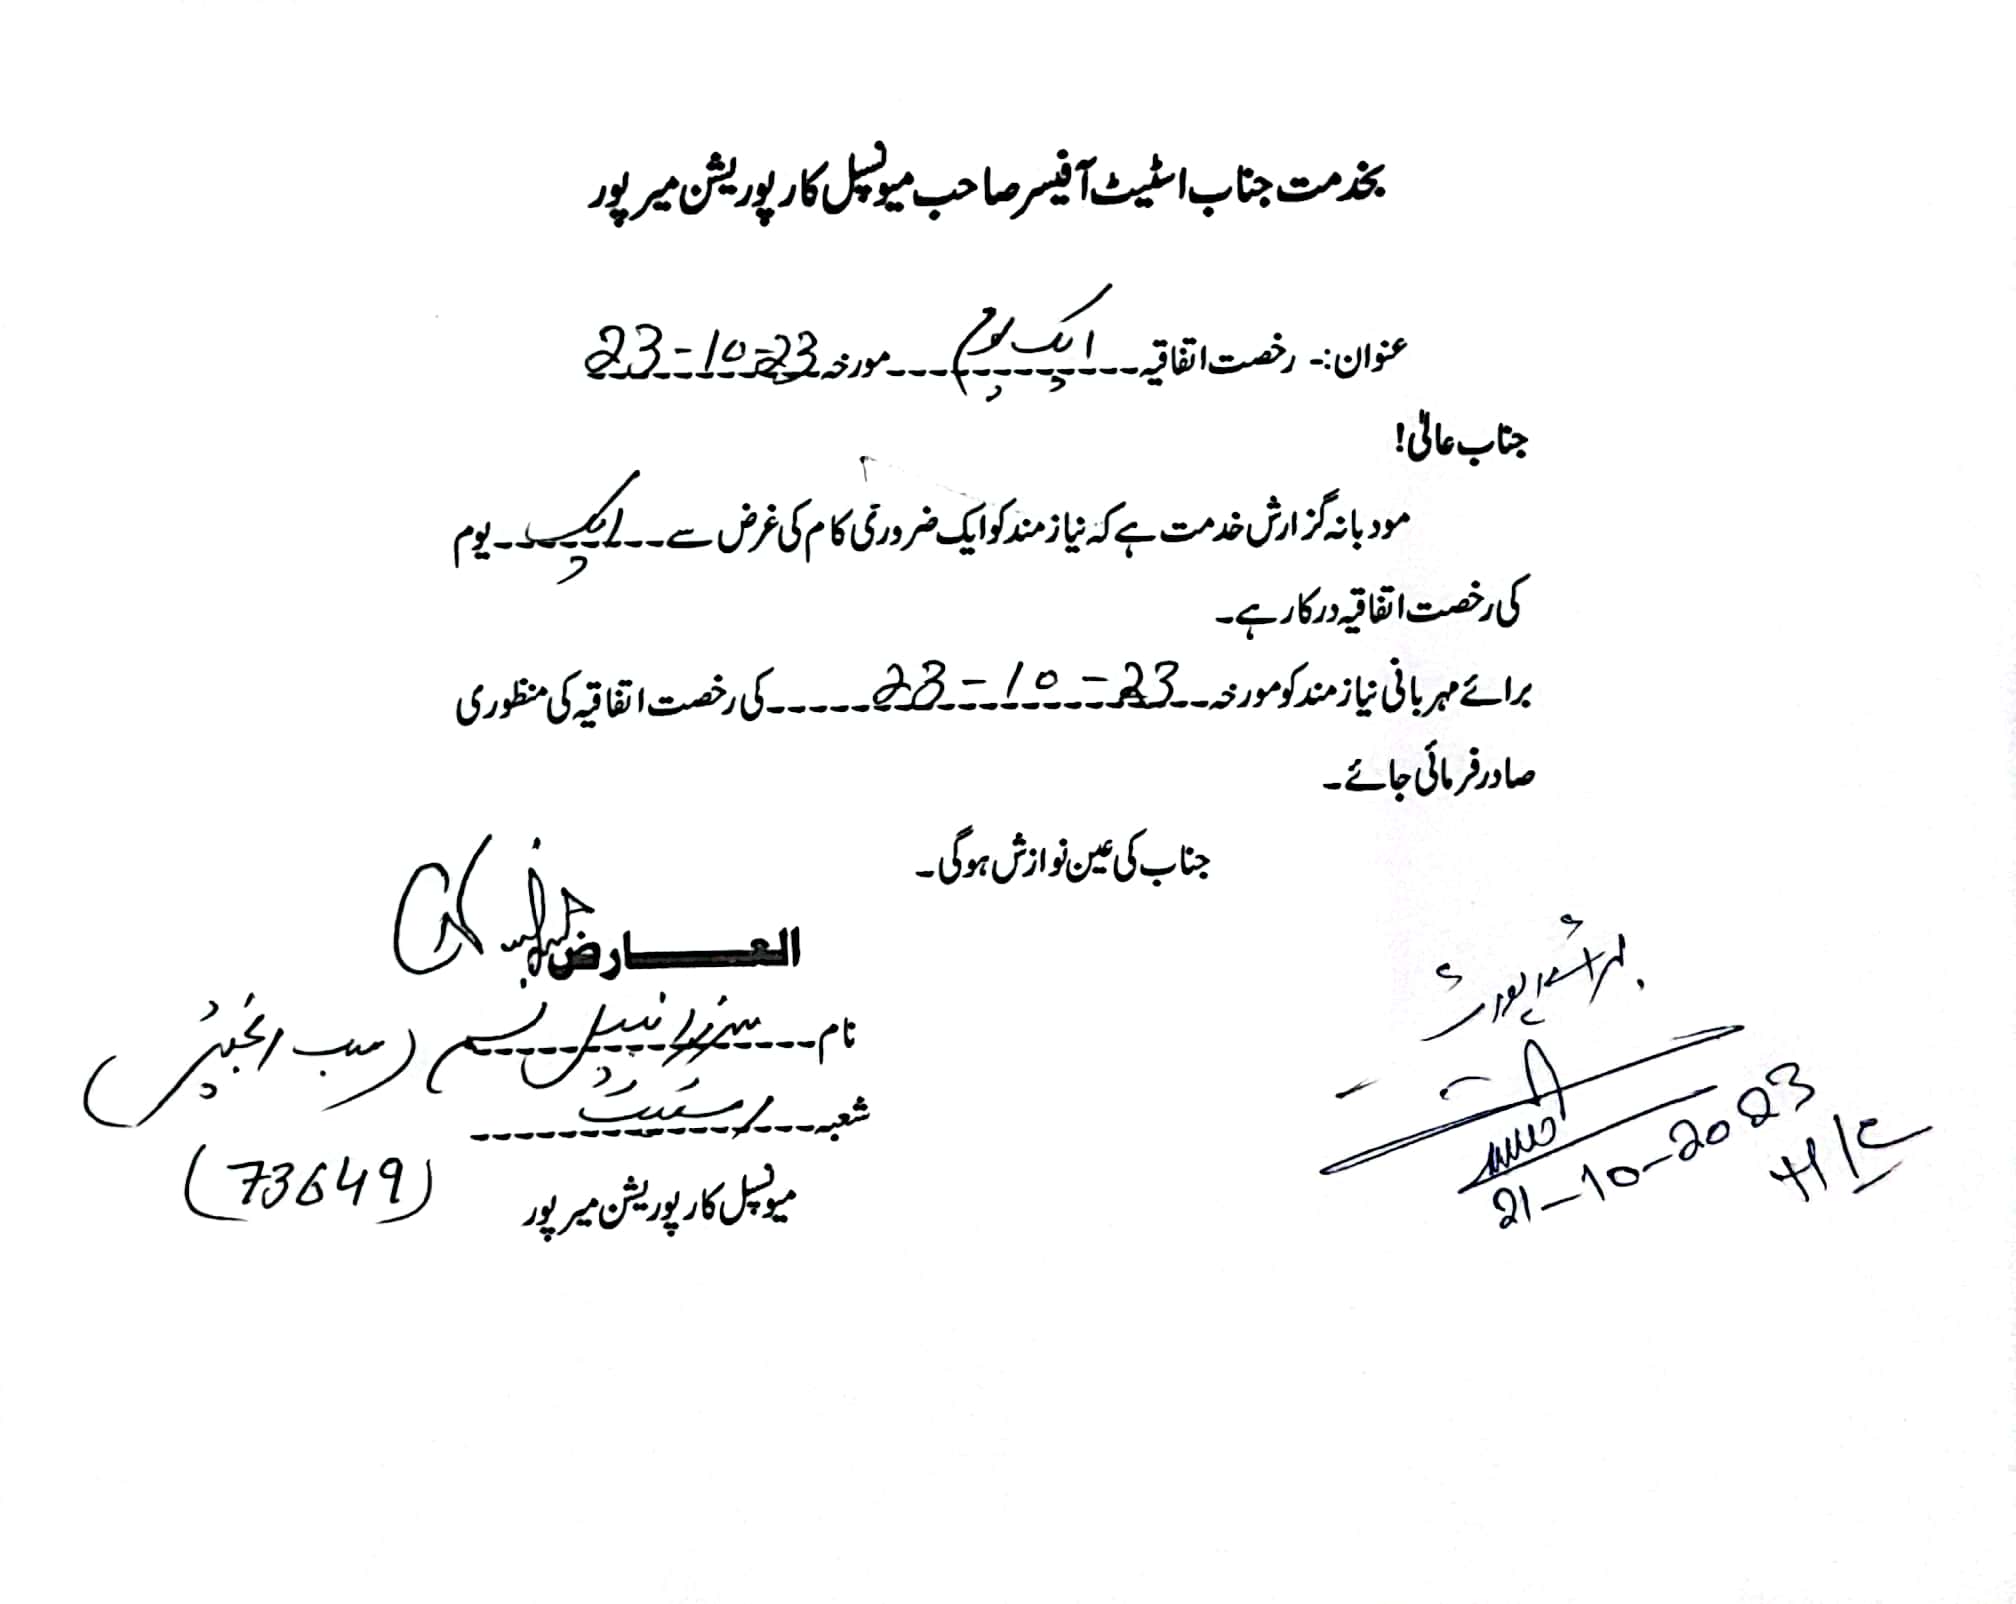 بخدمت جناب اسٹیٹ آفیسر صاحب میونسپل کارپوریشن میرپور
عنوان:۔ رخصت اتفاقیہ ایک یوم مورخہ 23-10-23
جناب عالی!
مودبانہ گزارش خدمت ہے کہ نیازمند کو ایک ضروری کام کی غرض سے ایک یوم
کی رخصت اتفاقیہ درکار ہے۔
برائے مہربانی نیازمند کو مورخہ 23-10-23 کی رخصت اتفاقیہ کی منظوری
صادر فرمائی جائے۔
جناب کی عین نوازش ہوگی۔
العارض
نام نبیل (سب انجینئر)
شعبہ اسٹیٹ
میونسپل کارپوریشن میرپور
(73649)
برائے رپورٹ
21-10-2023